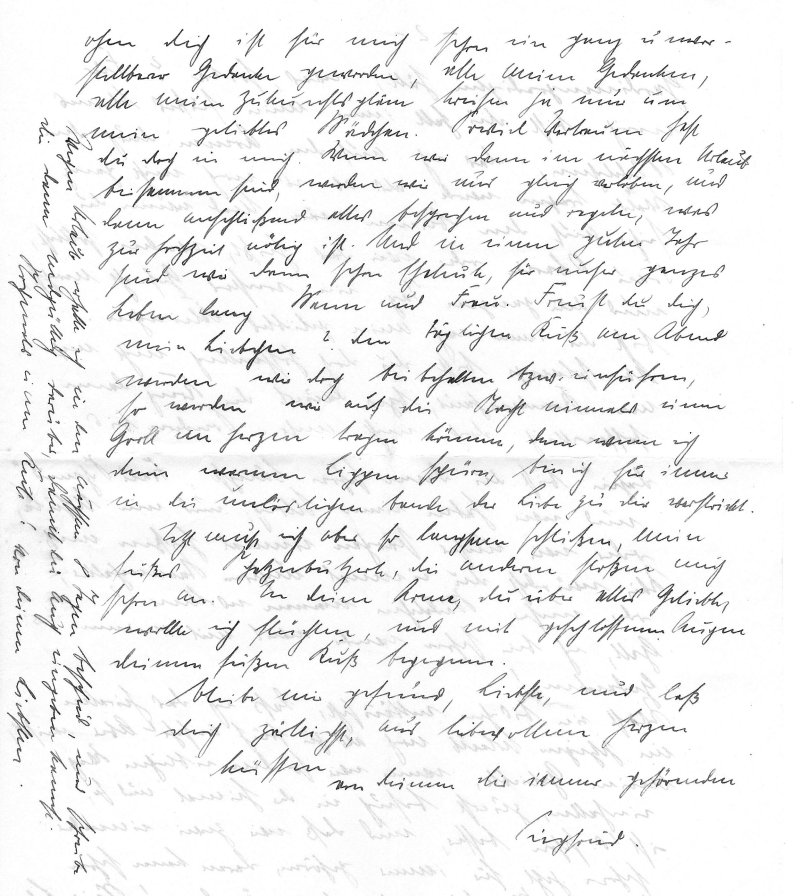 ohne dich ist für mich schon ein ganz unvor-
stellbarer Gedanke geworden, alle meine Gedanken,
alle meine Zukunftspläne kreisen ja nur um
mein geliebtes Mädchen. Soviel Vertrauen hast
du doch in mich. Wenn wir dann im nächsten Urlaub
beisammen sind, werden wir uns gleich verloben, und
dann anschließend alles besprechen und regeln, was
zur Hochzeit nötig ist. Und in einem guten Jahr
sind wir dann schon Eheleute, für unser ganzes
Leben lang Mann und Frau. Freust du dich,
mein Liebchen? den täglichen Kuß am Abend
werden wir doch beibehalten bzw. einführen,
so werden wir auf die Nacht niemals einen
Groll im Herzen tragen können, denn wenn ich
deine warmen Lippen spüre, bin ich für immer
in die unlöslichen bande der Liebe zu dir verstrickt.
Jetzt muß ich aber so langsam schließen, mein
süßes, die anderen stoßen mich
schon an. In deine Arme, du über alles Geliebte,
wollte ich flüchten, und mit geschlossenen Augen
deinem süßen Kuß begegnen.
bleibe mir gesund, Liebste, und laß
dich zärtlichst, aus liebevollem Herzen
küssen
von deinem dir immer gehörenden
Siegfried.
Wegen Urlaub erhalte ich in den nächsten Tagen bescheid, und schreibe
dir dann endgültig darüber, damit du auch eingeben kannst.
Nochmals einen Kuß! von deinem Liebsten.